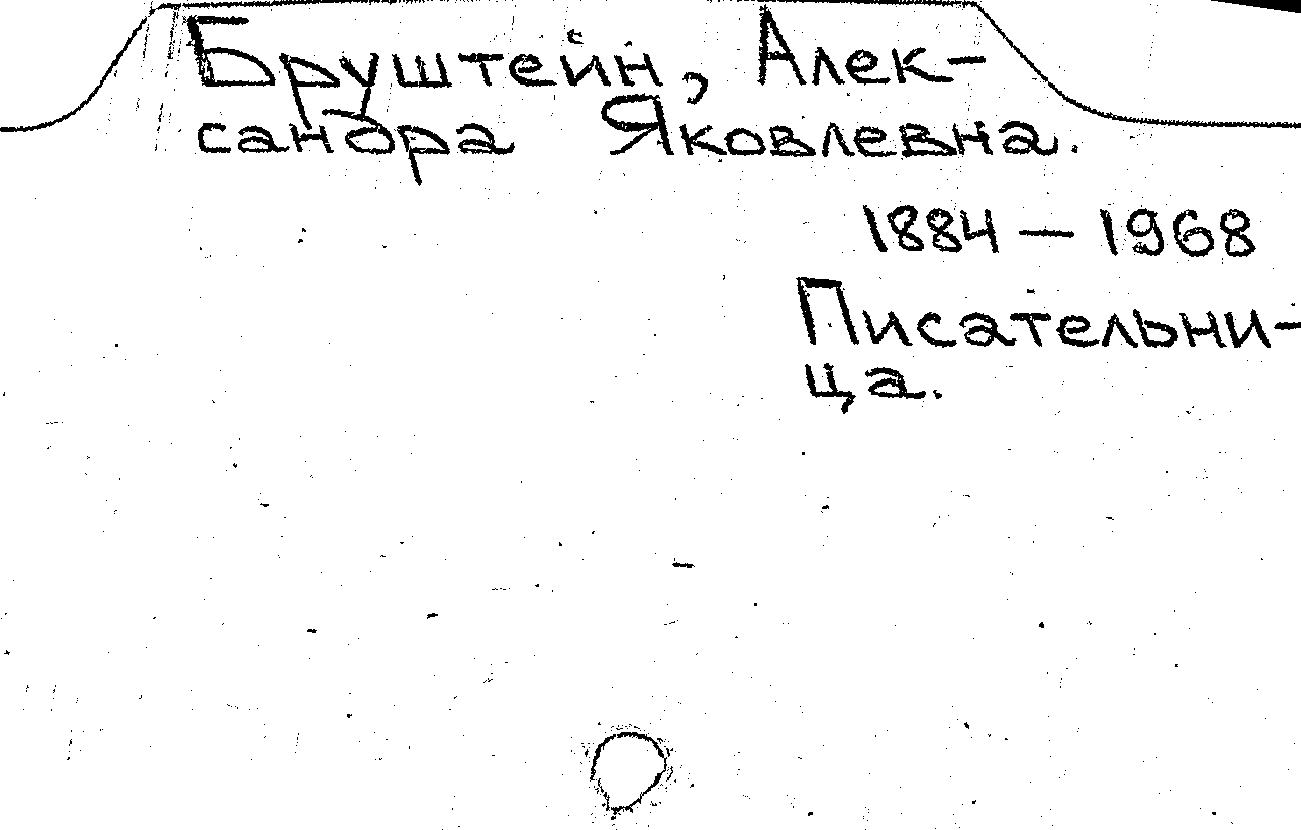 Бруштейн, Алек-
сандра Яковлевна.
1884 — 1968
Писательни-
ца.